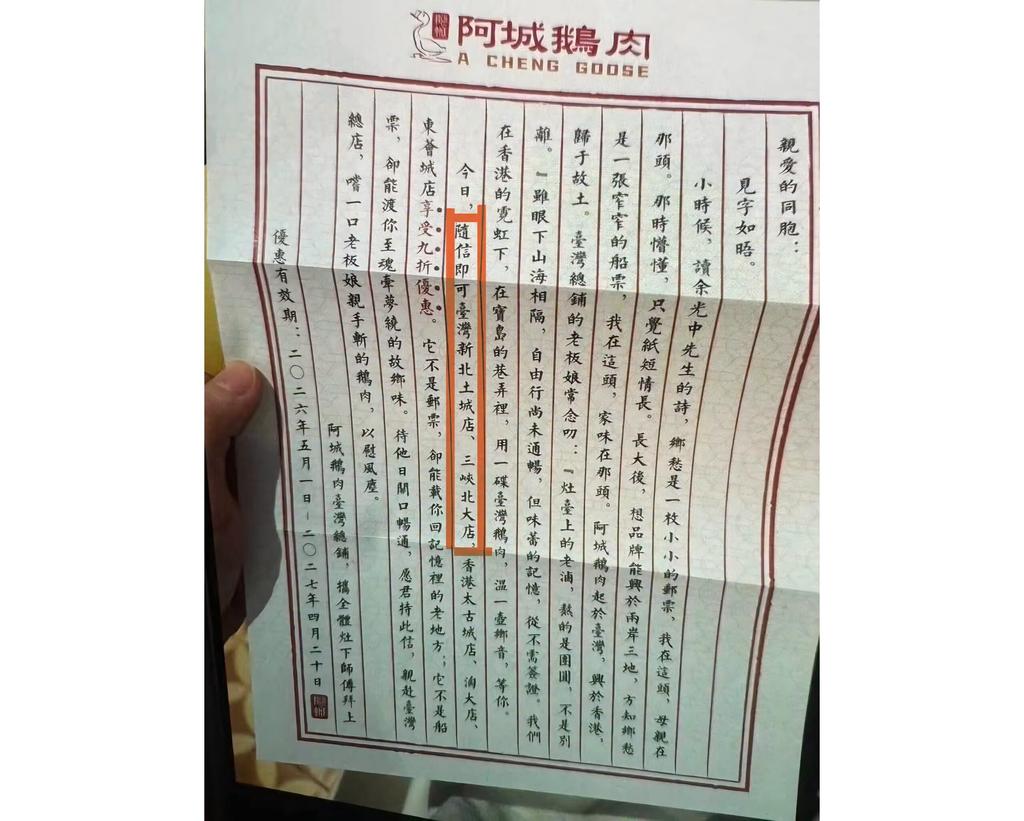 阿城鵝肉
A CHENG GOOSE
親愛的同胞：
見字如晤。
小時候，讀余光中先生的詩，鄉愁是一枚小小的郵票，我在這頭，母親在
那頭。那時懵懂，只覺紙短情長。長大後，想品牌能興於兩岸三地，方知鄉愁
是一張窄窄的船票，我在這頭，家味在那頭。阿城鵝肉起於臺灣，興於香港，
歸于故土。臺灣總鋪的老板娘常念叨：『灶臺上的老滷，熬的是團圓，不是別
離。『雖眼下山海相隔，自由行尚未通暢，但味蕾的記憶，從不需簽證。我們
在香港的霓虹下，在寶島的巷弄裡，用一碟臺灣鵝肉，溫一壺鄉音，等你。
今日，隨信即可臺灣新北土城店、三峽北大店，香港太古城店、海大店、
東薈城店享受九折優惠。它不是郵票，卻能載你回記憶裡的老地方；它不是船
票，卻能渡你至魂牽夢繞的故鄉味。待他日關口暢通，愿君持此信，親赴臺灣
總店，嚐一口老板娘親手斬的鵝肉，以慰風塵。
阿城鵝肉臺灣總鋪，攜全體灶下師傅拜上
優惠有效期：二〇二六年五月一日－二〇二七年四月二十日